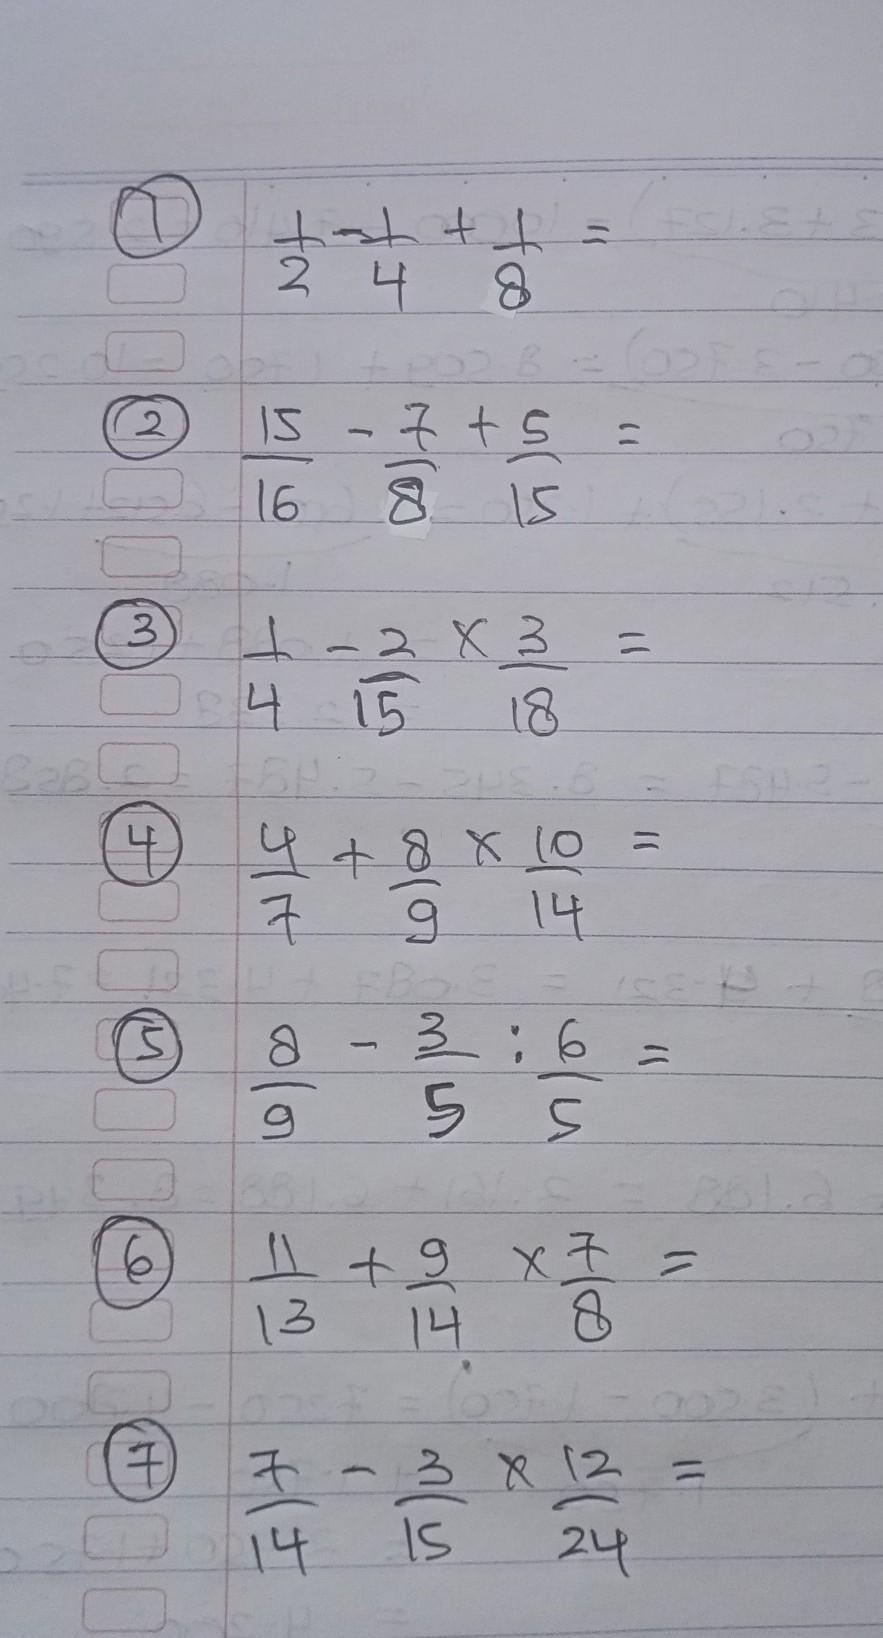 ① 1/2 - 1/4 + 1/8 =
② 15/16 - 7/8 + 5/15 =
③ 1/4 - 2/15 × 3/18 =
④ 4/7 + 8/9 × 10/14 =
⑤ 8/9 - 3/5 : 6/5 =
⑥ 11/13 + 9/14 × 7/8 =
⑦ 7/14 - 3/15 × 12/24 =